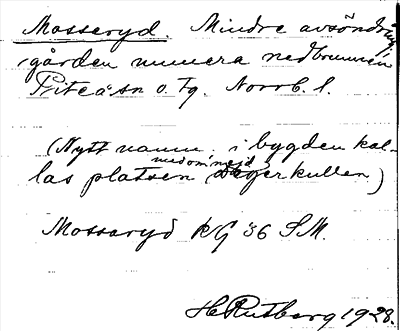 Mosseryd. Mindre avsöndring,
gården numera nedbrunnen
Piteå sn o. tg. Norrb. l.
(Nytt namn. i bygden kal-
nedom
las platsen Degerkullen)
Mossaryd KG 36 SM.
H. Rutberg 1928.